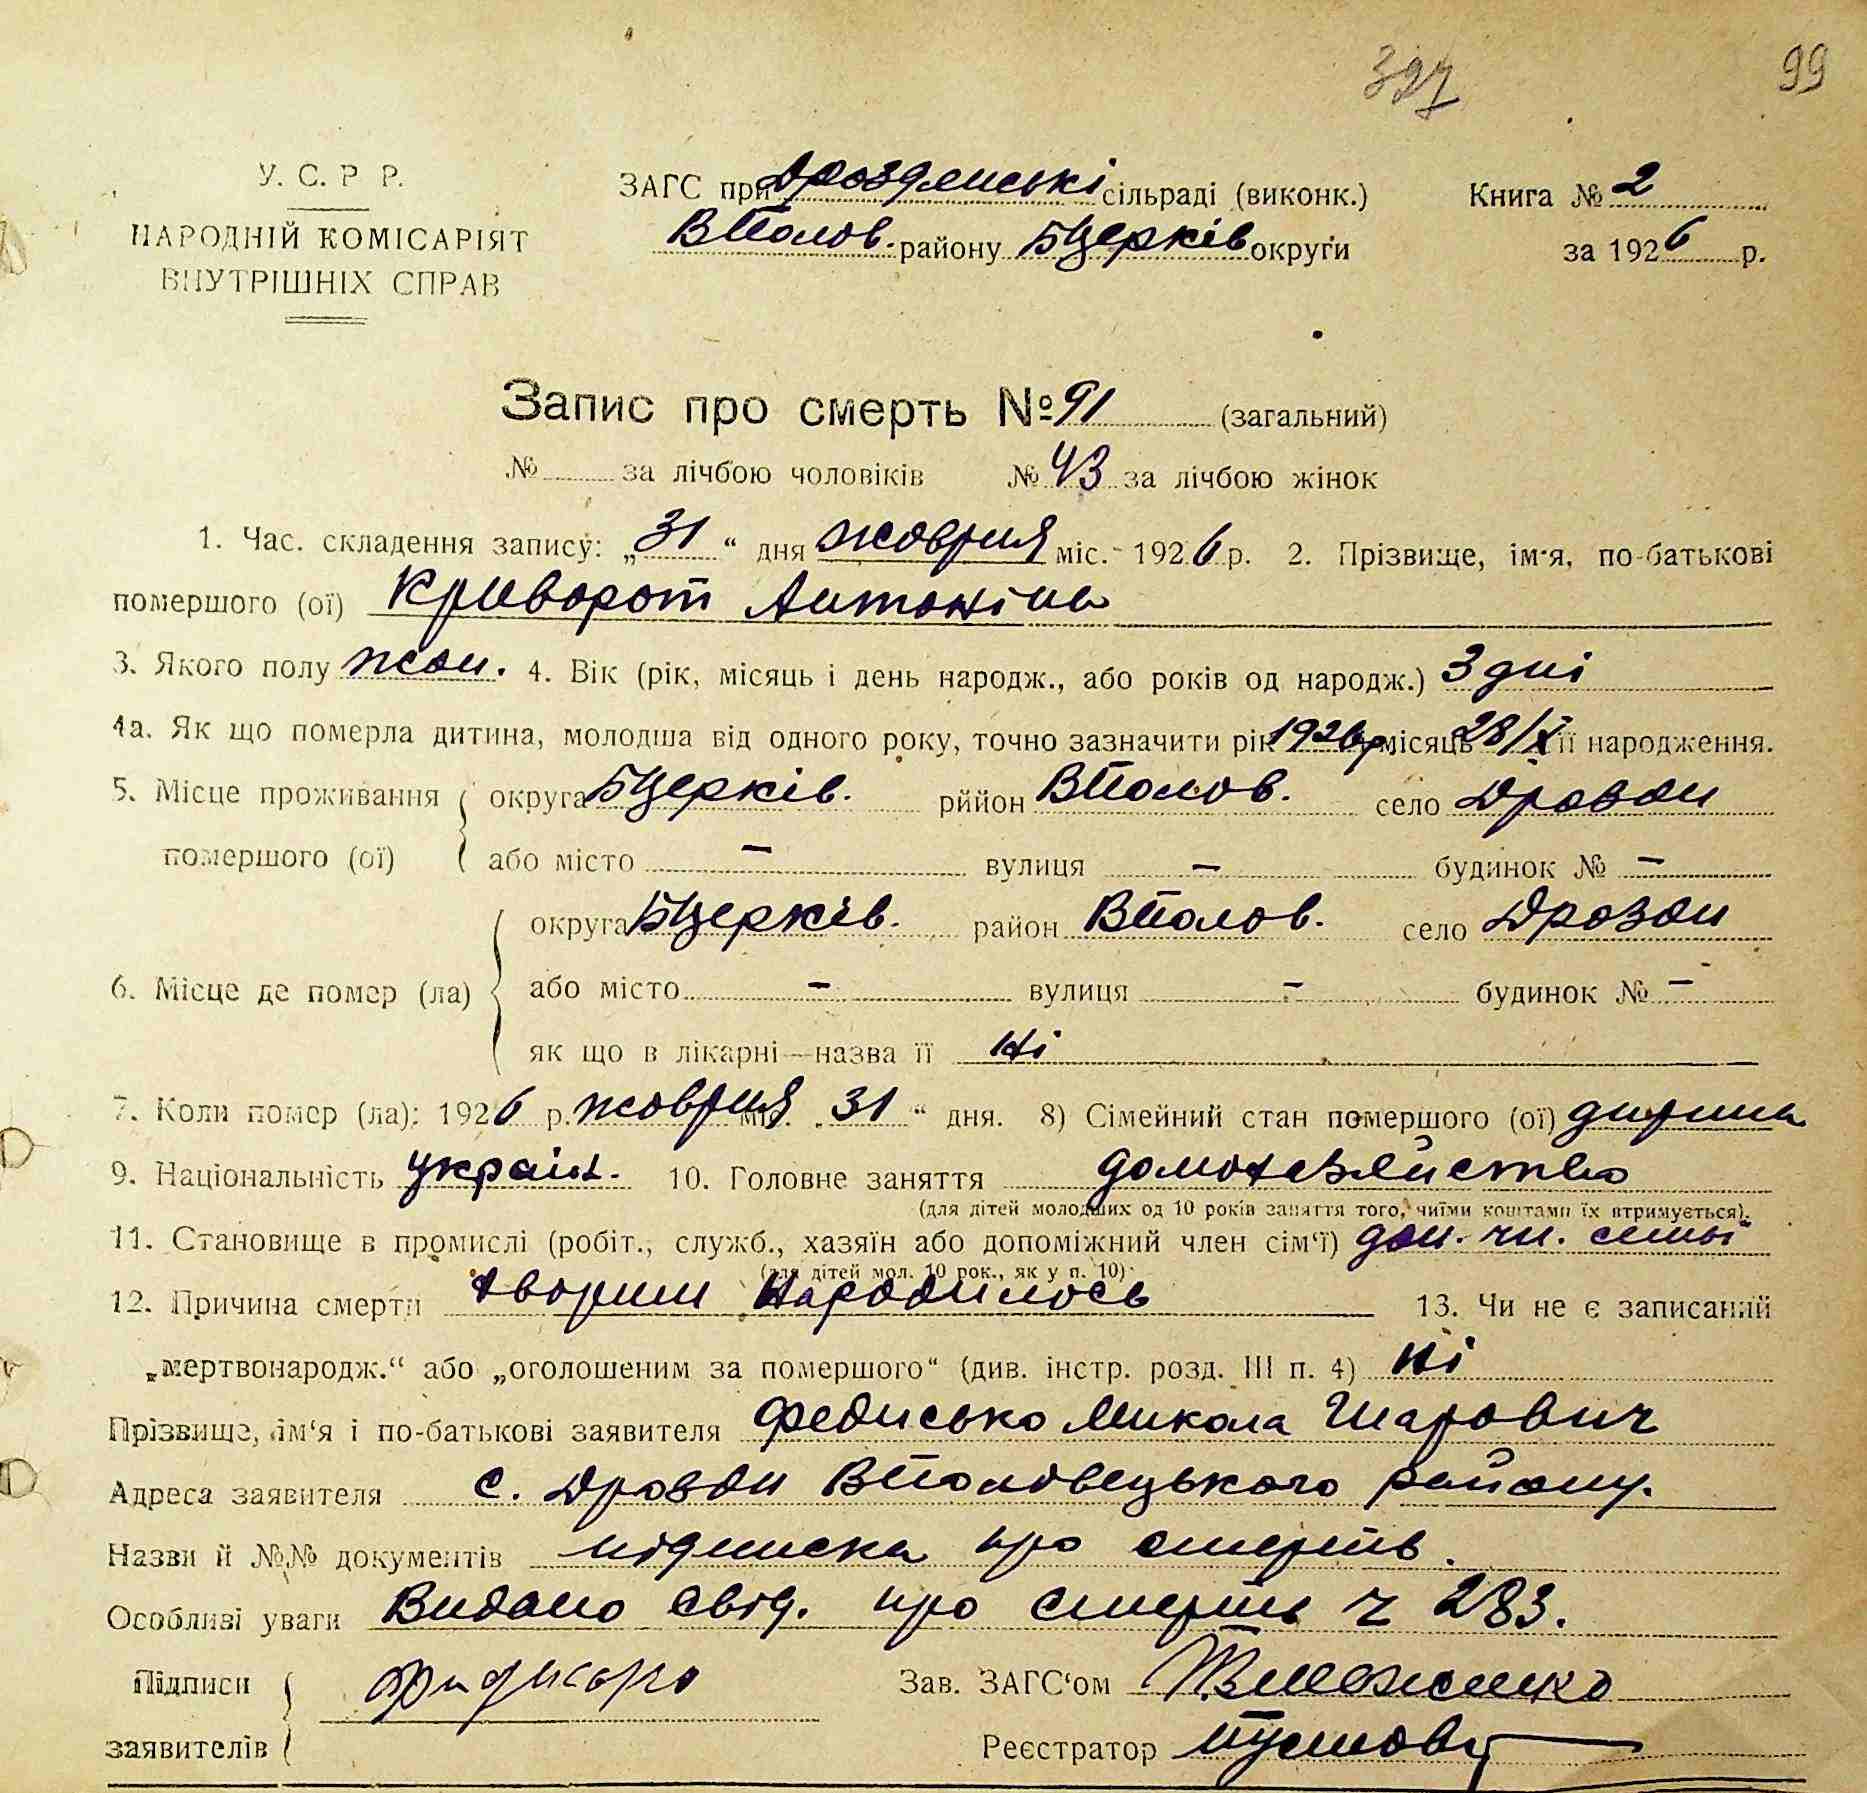 397 99
У. С. Р Р.
НАРОДНІЙ КОМІСАРІЯТ
ВНУТРІШНІХ СПРАВ
ЗАГС при Дрозденські сільраді (виконк.) Книга № 2
ВПолов. району БЦерків округи за 1926 р.
Запис про смерть № 91 (загальний)
№ за лічбою чоловіків № 43 за лічбою жінок
1. Час. складення запису: „31“ дня жовтня міс. 1926 р. 2. Прізвище, ім'я, по-батькові
помершого (ої) Криворот Антоніна
3. Якого полу жон. 4. Вік (рік, місяць і день народж., або років од народж.) 3 дні
4а. Як що померла дитина, молодша від одного року, точно зазначити рік 1926 р. місяць 28/X її народження.
5. Місце проживання округа БЦерків. рййон ВПолов. село Дрозди
помершого (ої) або місто — вулиця — будинок № —
округа БЦерків. район ВПолов. село Дрозди
6. Місце де помер (ла) або місто - вулиця - будинок № -
як що в лікарні—назва її ні
7. Коли помер (ла): 1926 р. жовтня міс. „31“ дня. 8) Сімейний стан помершого (ої) дитина
9. Національність україн. 10. Головне заняття
(для дітей молодших од 10 років заняття того, чиїми коштами їх втримується).
11. Становище в промислі (робіт., служб., хазяїн або допоміжний член сім'ї) доп. чл. сімьї
(для дітей мол. 10 рок., як у п. 10)
12. Причина смерти хворим народилось 13. Чи не є записаний
„мертвонародж.“ або „оголошеним за помершого“ (див. інстр. розд. III п. 4) ні
Прізвище, ім'я і по-батькові заявителя Федисько Микола
Адреса заявителя с. Дрозди ВПоловецького району.
Назви й №№ документів підписка про смерть.
Особливі уваги Видано свід. про смерть ч 283.
Підписи Зав. ЗАГС'ом
заявителів Реєстратор